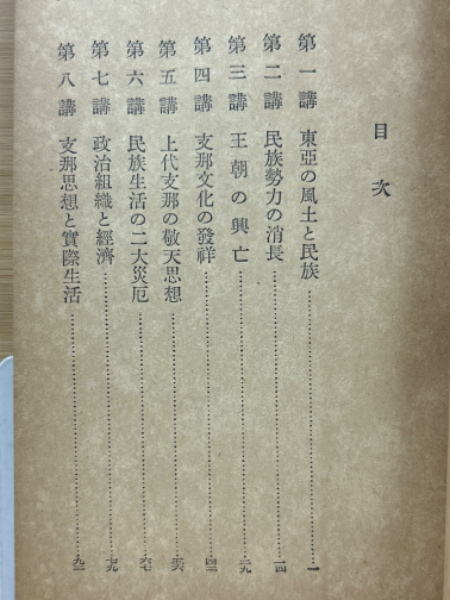 目次
第一講 東亞の風土と民族……一
第二講 民族勢力の消長……一四
第三講 王朝の興亡……二九
第四講 支那文化の發祥……四三
第五講 上代支那の敬天思想……五六
第六講 民族生活の二大災厄……六七
第七講 政治組織と經濟……七九
第八講 支那思想と實際生活……九三